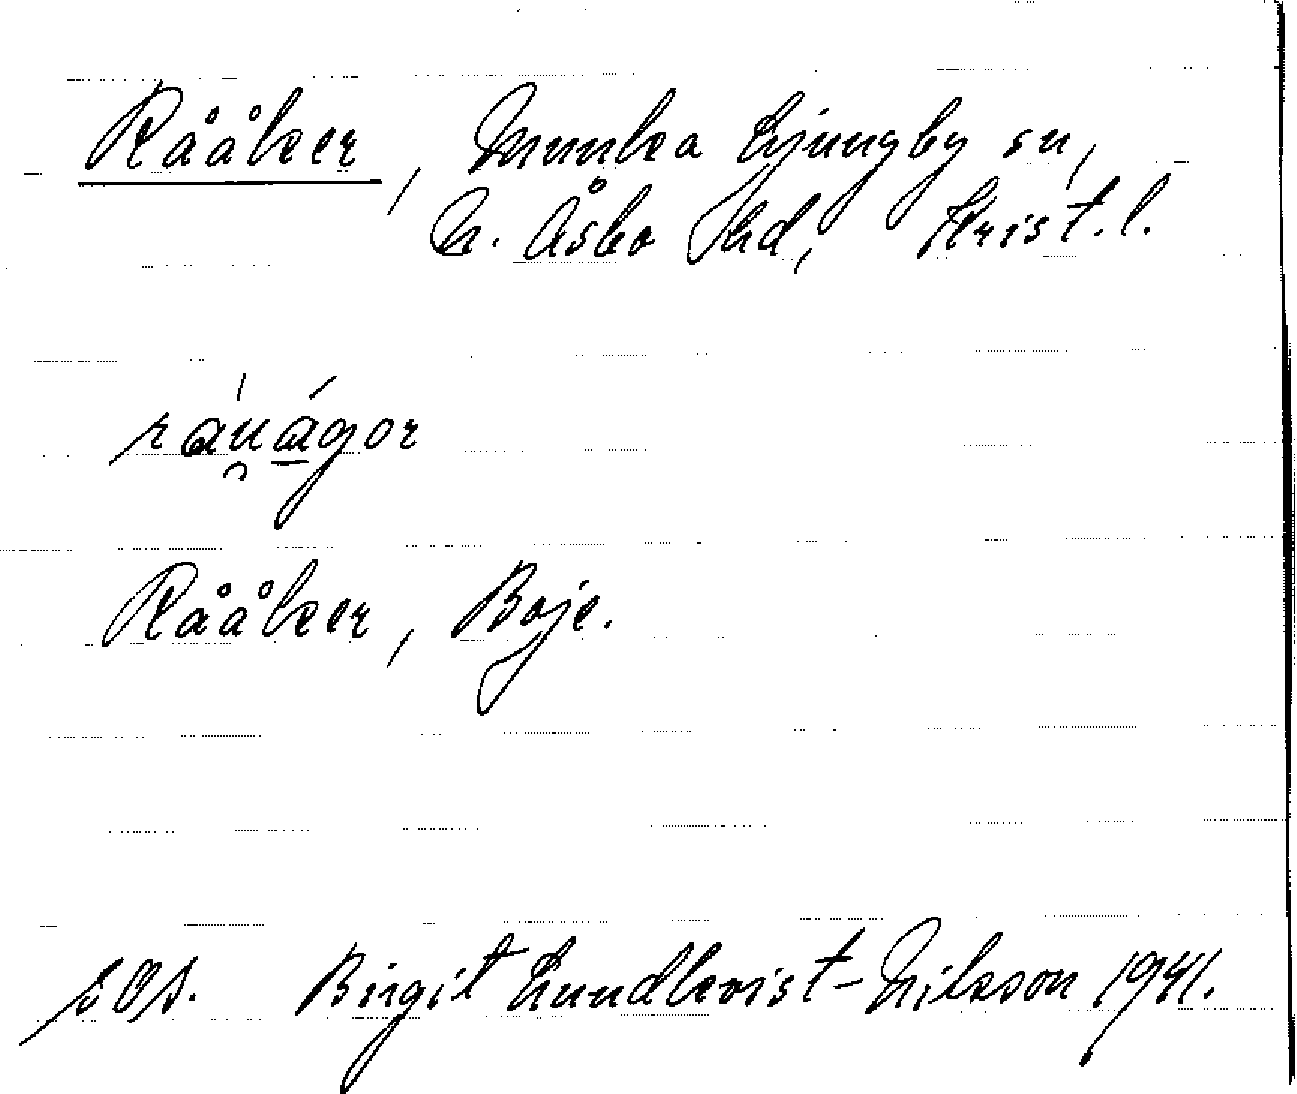 Rååker, Munka Ljungby sn,
N. Åsbo hd, Krist. l.
Rååker, Boje.
s Os. Birgit Lundkvist-Nilsson 1941.